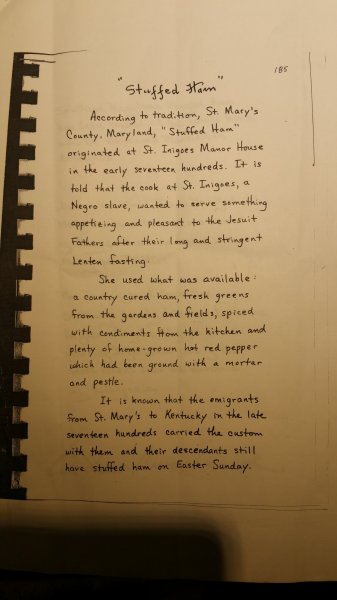 185
"Stuffed Ham"
According to tradition, St. Mary's
County, Maryland, "Stuffed Ham"
originated at St. Inigoes Manor House
in the early seventeen hundreds. It is
told that the cook at St. Inigoes, a
Negro slave, wanted to serve something
appetizing and pleasant to the Jesuit
Fathers after their long and stringent
Lenten fasting.
She used what was available:
a country cured ham, fresh greens
from the gardens and fields, spiced
with condiments from the kitchen and
plenty of home-grown hot red pepper
which had been ground with a mortar
and pestle.
It is known that the emigrants
from St. Mary's to Kentucky in the late
seventeen hundreds carried the custom
with them and their descendants still
have stuffed ham on Easter Sunday.